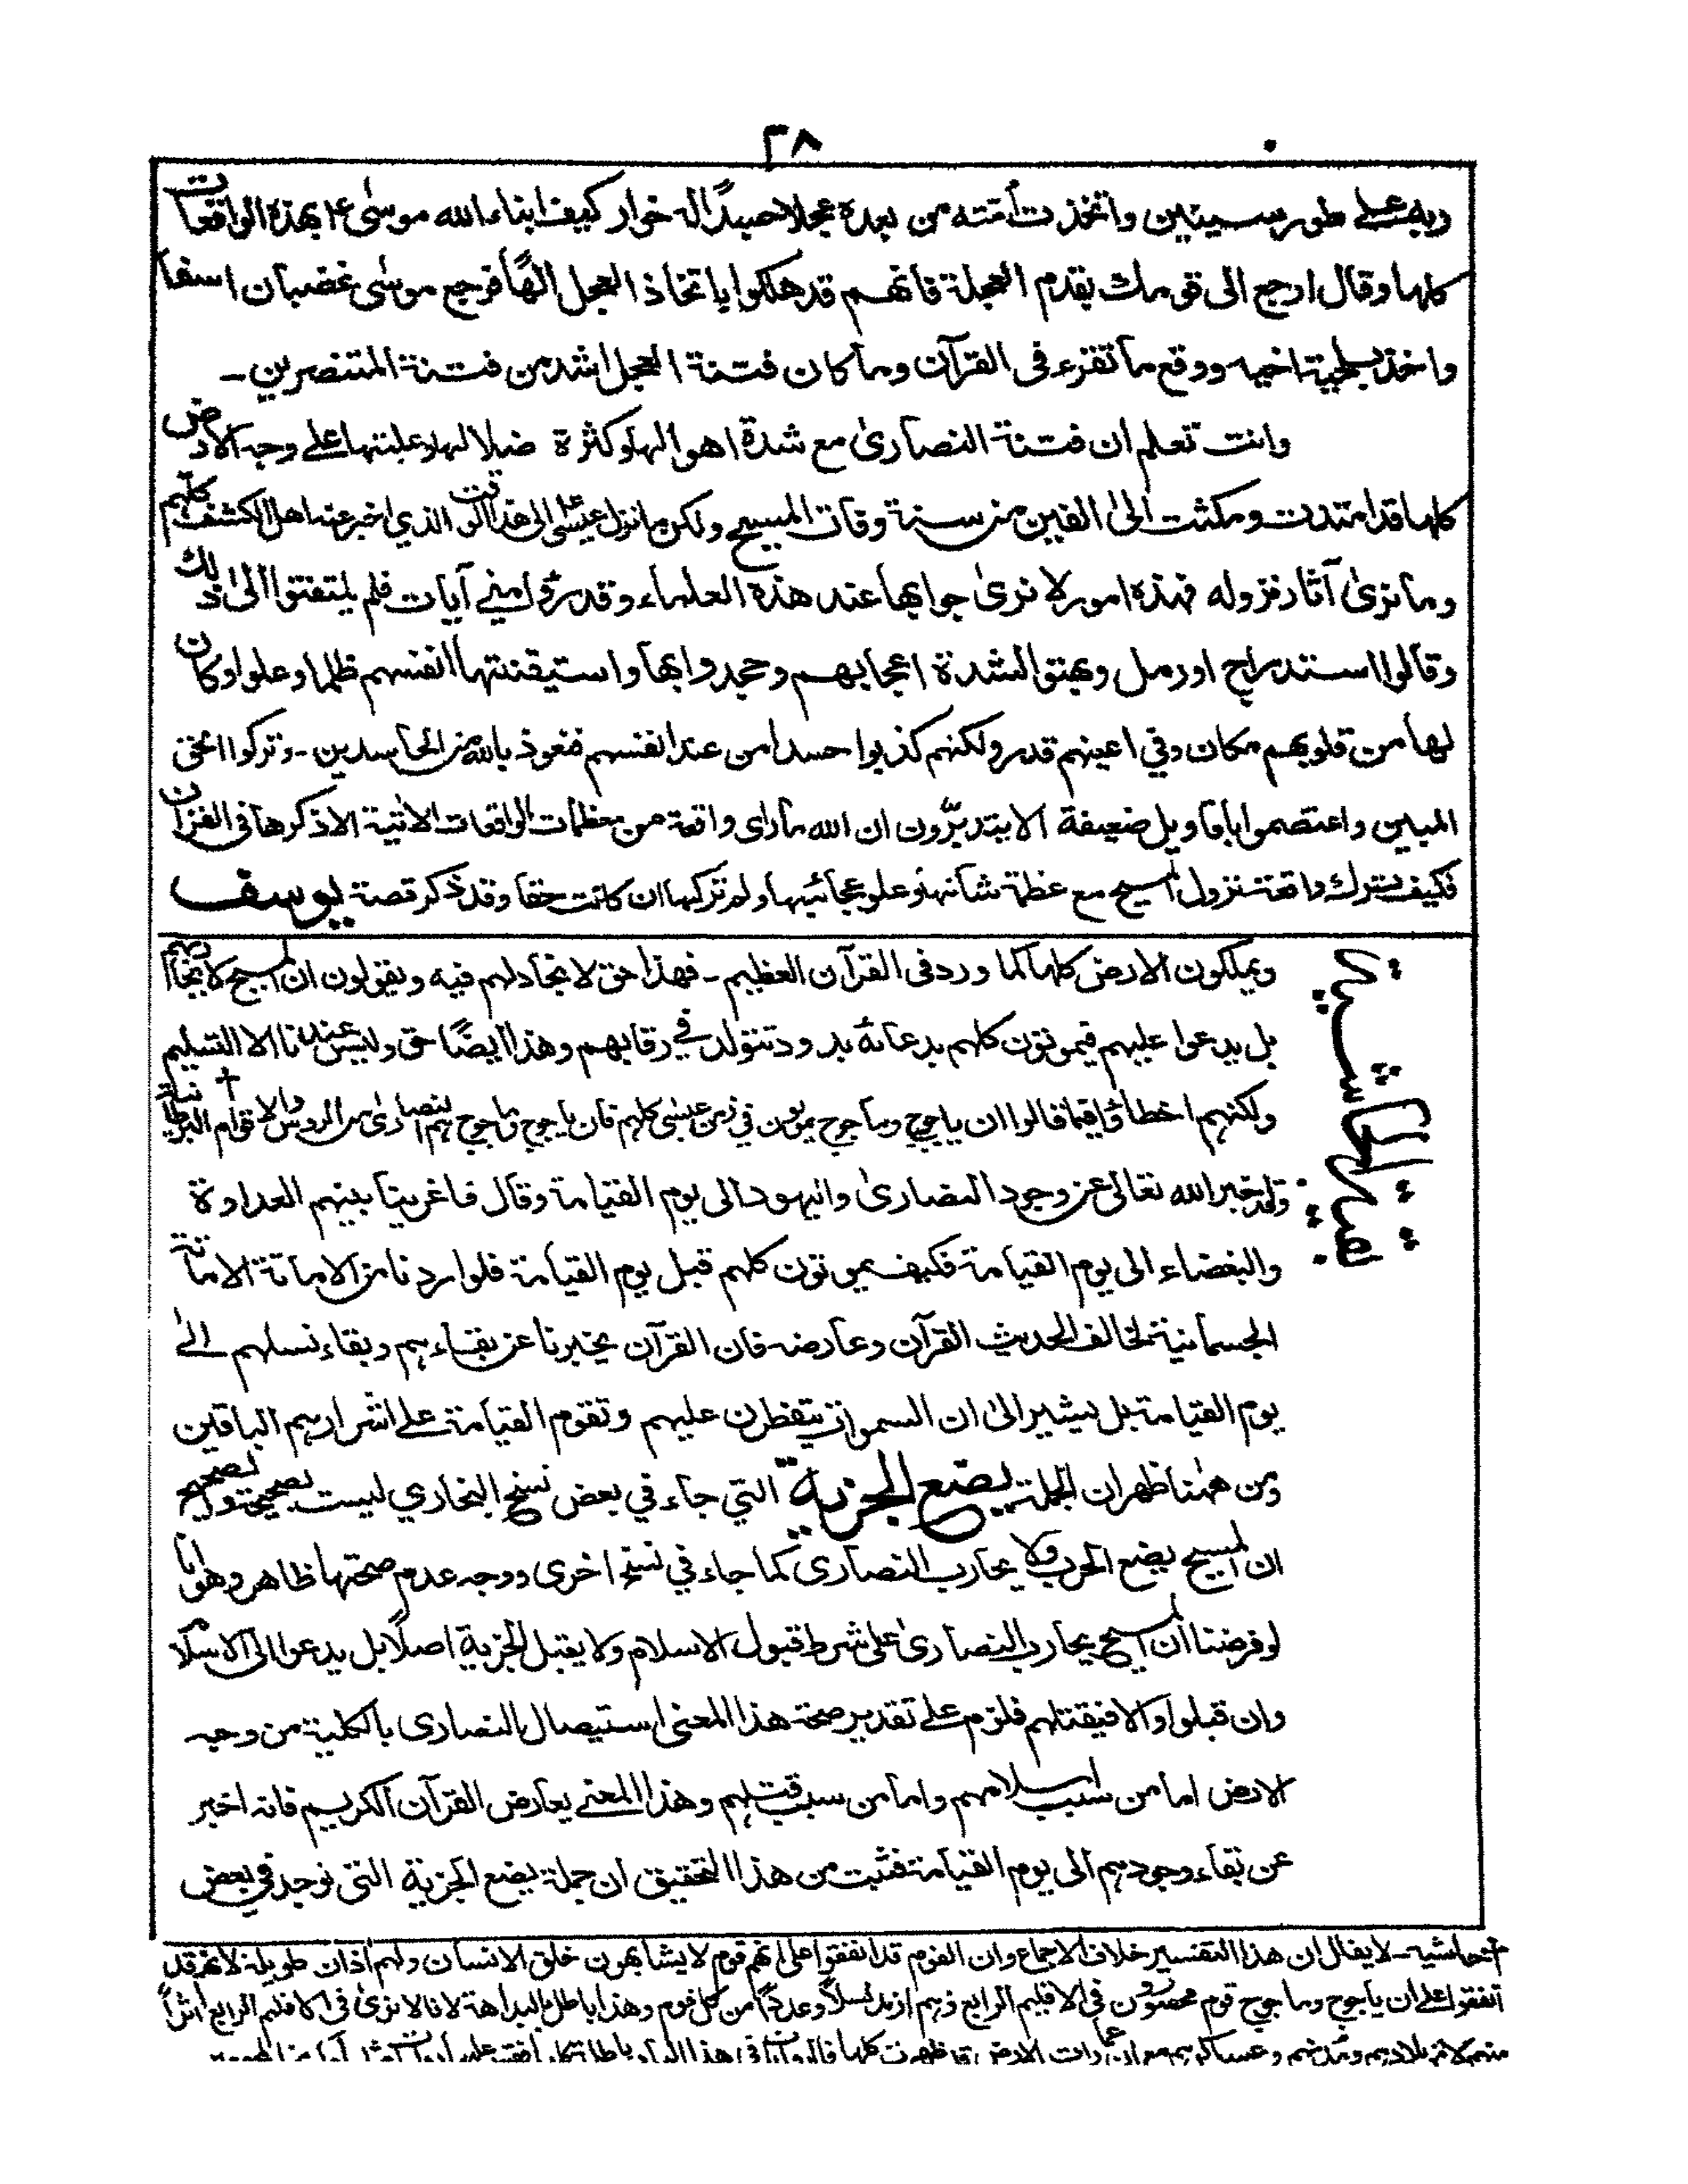 ٣٨
ربه على طور سينين واتخذت أمته من بعده عجلا جسدًا له خوار كيف انباء الله موسىٰ ؑ بهذه الواقعات
كلها وقال ارجع الى قومك بقدم العجلة فانهم قد هلكوا باتخاذ العجل الٰهًا فرجع موسٰى غضبان اسفا
واخذ بلحية اخيه ووقع ما تقرء فى القرآن وما كان فتنة العجل اشد من فتنة المتنصرين ـ
وانت تعلم ان فتنة النصارىٰ مع شدة اهوالها وكثرة ضلالها وغلبتها على وجه الارض
كلها قد امتدت ومكثت الىٰ الفين من سنة وفات المسيح ولكن ما نزل عيسٰى الى هذا الوقت الذي اخبر عنه اهل الكشف كلهم
وما نرىٰ آثار نزوله فهذه امور لا نرىٰ جوابها عند هذه العلماء وقد رؤا منى آيات فلم يلتفتوا الىٰ ذلك
وقالوا استدراج اورمل وبهتوا لشدة اعجابهم وجحدوا بها واستيقنتها انفسهم ظلما وعلوا وكان
لها من قلوبهم مكان وفي اعينهم قدر ولكنهم كذبوا حسدا من عند انفسهم فنعوذ بالله من الحاسدين ـ وتركوا الحق
المبين واعتصموا باقاويل ضعيفة الا يتدبّرون ان الله ما راى واقعة من معظمات الواقعات الاٰتية الا ذكرها فى القرآن
فكيف يترك واقعة نزول المسيح مع عظمة شأنها وعلو عجائبها ولم تركها ان كانت حقا وقد ذكر قصة يوسف
بقية الحاشية
ويملكون الارض كلها كما ورد فى القرآن العظيم ـ فهذا حق لا نجادلهم فيه ويقولون ان المسيح لا يحاربهم
بل يدعوا عليهم فيموتون كلهم بدعائه بدود تتولد في رقابهم وهذا ايضًا حق وليس عندنا الا التسليم
ولكنهم اخطأوا فيما قالوا ان ياجوج وماجوج يموتون في زمن عيسى كلهم فان ياجوج وماجوج هم النصارىٰ من الروس والاقوام البرطانية †
وقد اخبر الله تعالى عن وجود النصارىٰ واليهود الى يوم القيامة وقال فاغرينا بينهم العداوة
والبغضاء الى يوم القيامة فكيف يموتون كلهم قبل يوم القيامة فلو اردنا من الاماتة الاماتة
الجسمانية لخالف الحديث القرآن وعارضه فان القرآن يخبرنا عن بقاءهم وبقاء نسلهم الىٰ
يوم القيامة بل يشير الىٰ ان السموات يتفطرن عليهم وتقوم القيامة على اشرارهم الباقين
ومن ههٰنا ظهر ان الجملة يضع الجزية التي جاء في بعض نسخ البخاري ليست بصحيحة والصحيح
ان المسيح يضع الحرب ولا يحارب النصارى كما جاء في نسخ اخرى ووجه عدم صحتها ظاهر وهو انا
لو فرضنا ان المسيح يحارب النصارىٰ على شرط قبول الاسلام ولا يقبل الجزية اصلًا بل يدعوا الى الاسلام
وان قبلوا والا فيقتلهم فلزم على تقدير صحة هذا المعنى استيصال النصارى بالكلية من وجه
الارض اما من سبب اسلامهم واما من سبب قتلهم وهذا المعنى يعارض القرآن الكريم فانه اخبر
عن بقاء وجودهم الى يوم القيامة فثبت من هذا التحقيق ان جملة يضع الجزية التى توجد في بعض
† حاشية ـ لا يقال ان هذا التفسير خلاف الاجماع وان القوم قد اتفقوا على انهم قوم لا يشابهون خلق الانسان ولهم اذان طويلة لانهم قد
اتفقوا على ان ياجوج وماجوج قوم محصورون فى الاقليم الرابع وهم ازيد نسلًا وعددًا من كل قوم وهذا باطل بالبداهة لانا لا نرىٰ فى الاقليم الرابع اثرًا
منهم ولا من بلادهم ومدنهم وعساكرهم مع ان عمارات الارض قد ظهرت كلها